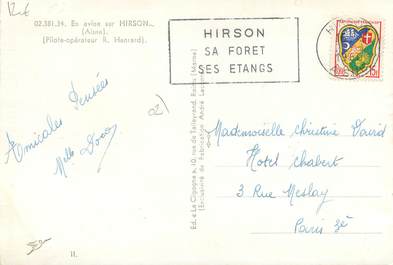 02.381.34. En avion sur HIRSON...
(Aisne)
(Pilote-opérateur R. Henrard).
HIRSON
SA FORET
SES ETANGS
Amicales Pensées
Melle
02
Ed. « La Cigogne », 10, rue de Talleyrand, Reims (Marne)
(Exclusivité de Fabrication André Leconte)
Mademoiselle Christine David
Hotel Chabert
3 Rue Meslay
Paris 3è
II.